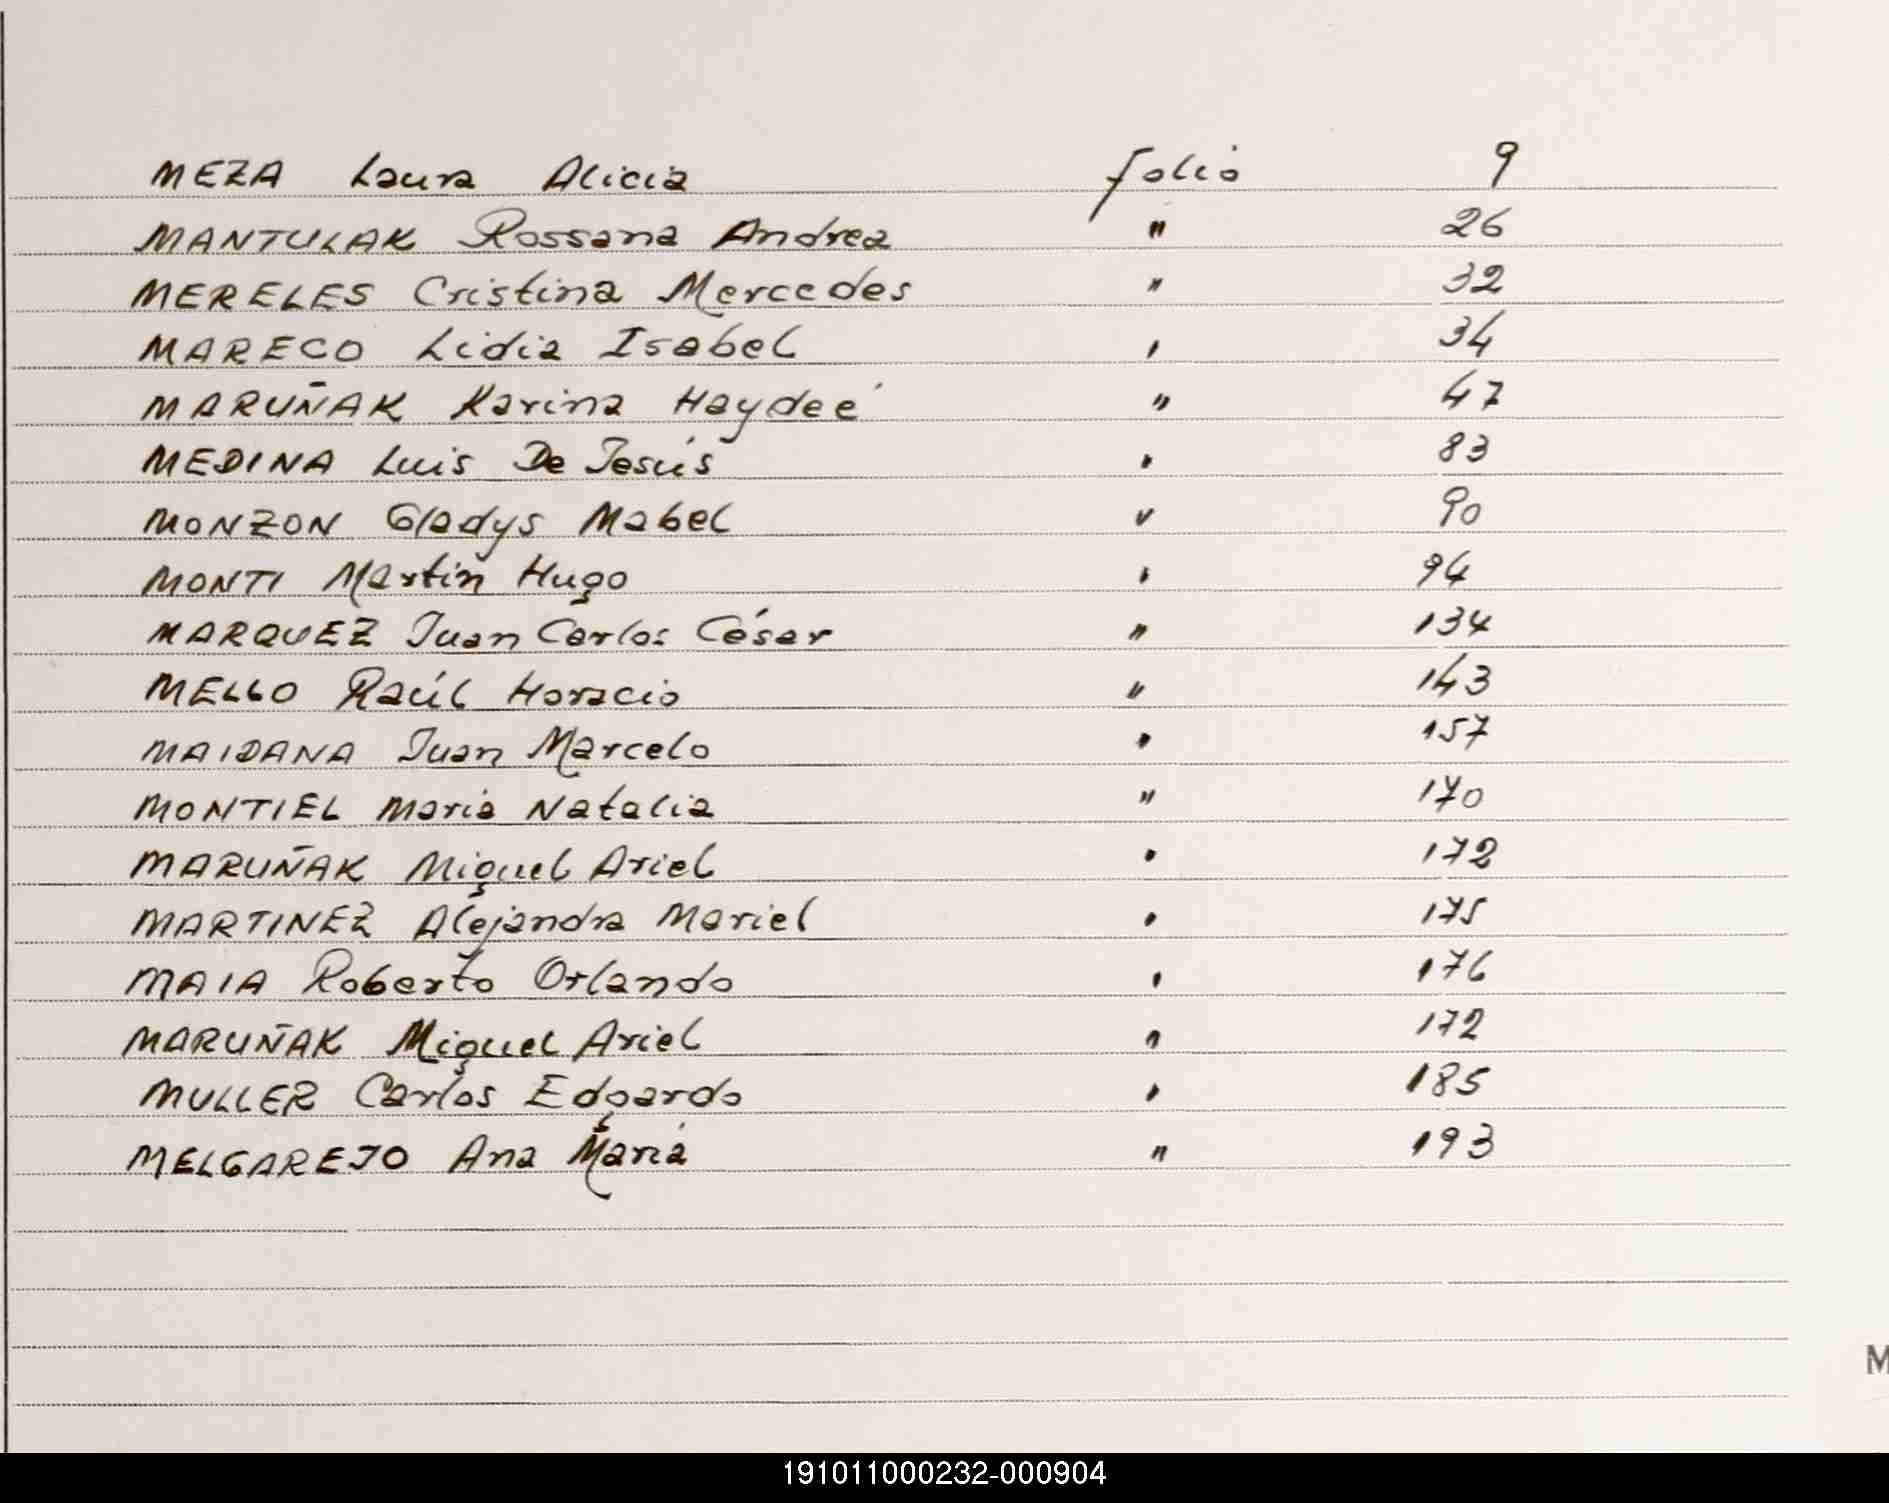 MEZA Laura Alicia folio 9
MANTULAK Rossana Andrea " 26
MERELES Cristina Mercedes " 32
MARECO Lidia Isabel " 34
MARUÑAK Karina Haydeé " 47
MEDINA Luis De Jesús " 83
MONZON Gladys Mabel " 90
MONTI Martín Hugo " 94
MARQUEZ Juan Carlos César " 134
MELLO Raúl Horacio " 143
MAIDANA Juan Marcelo " 157
MONTIEL Maria Natalia " 170
MARUÑAK Miguel Ariel " 172
MARTINEZ Alejandra Mariel " 175
MAIA Roberto Orlando " 176
MARUÑAK Miguel Ariel " 172
MULLER Carlos Edgardo " 185
MELGAREJO Ana María " 193
M
191011000232-000904